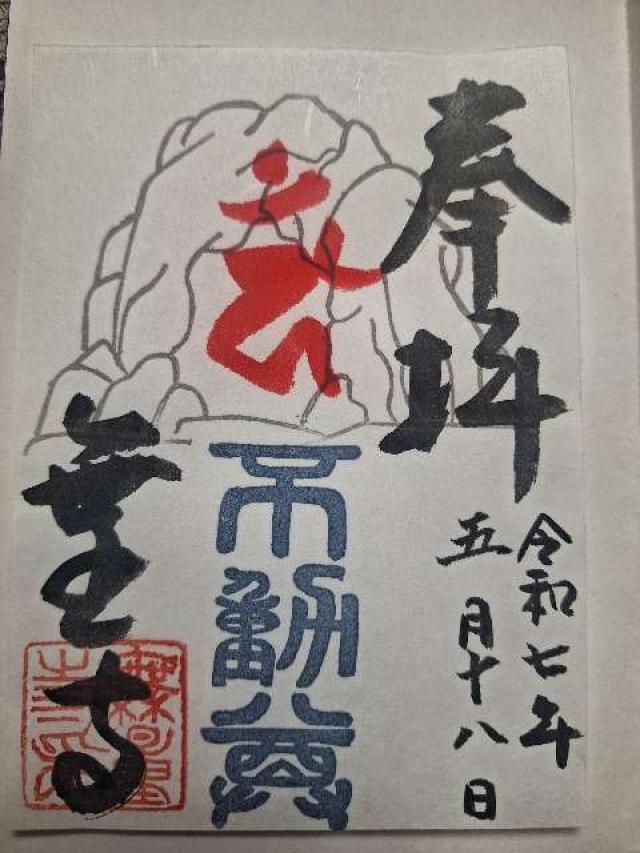 奉拝
令和七年
五月十八日
不動尊
寺